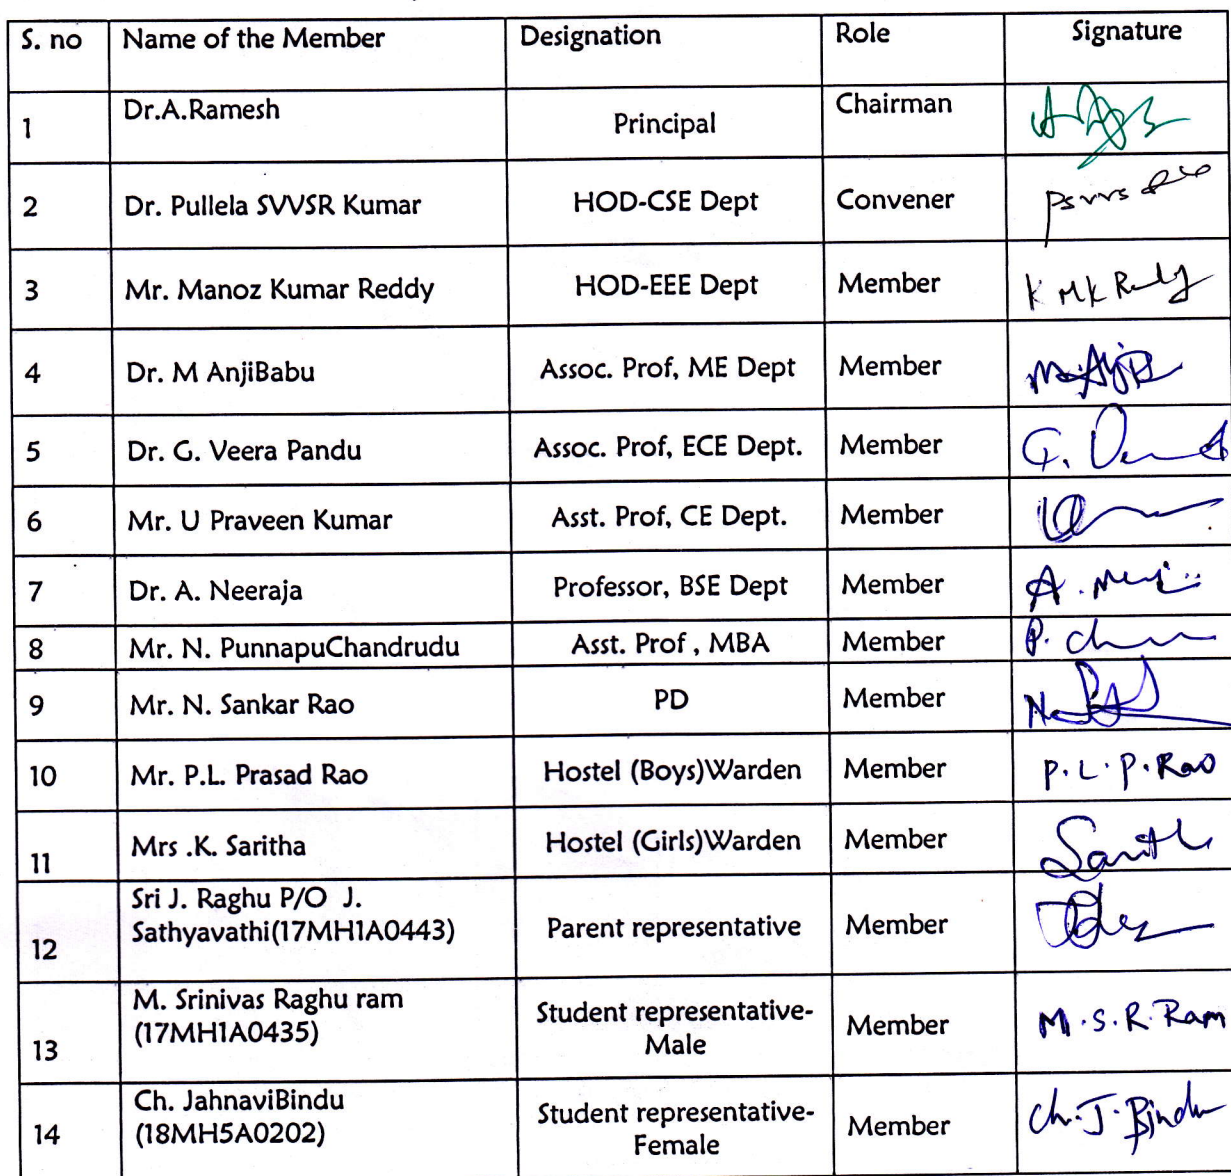 S. no Name of the Member Designation Role Signature
1 Dr.A.Ramesh Principal Chairman
2 Dr. Pullela SVVSR Kumar HOD-CSE Dept Convener
3 Mr. Manoz Kumar Reddy HOD-EEE Dept Member K MK Reddy
4 Dr. M AnjiBabu Assoc. Prof, ME Dept Member
5 Dr. G. Veera Pandu Assoc. Prof, ECE Dept. Member G.
6 Mr. U Praveen Kumar Asst. Prof, CE Dept. Member
7 Dr. A. Neeraja Professor, BSE Dept Member A.
8 Mr. N. PunnapuChandrudu Asst. Prof , MBA Member P.
9 Mr. N. Sankar Rao PD Member
10 Mr. P.L. Prasad Rao Hostel (Boys)Warden Member P.L.P.Rao
11 Mrs .K. Saritha Hostel (Girls)Warden Member
Sri J. Raghu P/O J.
12 Sathyavathi(17MH1A0443) Parent representative Member
M. Srinivas Raghu ram
13 (17MH1A0435) Student representative- Member M.S.R.Ram
Male
Ch. JahnaviBindu
14 (18MH5A0202) Student representative- Member Ch.J.Bindu
Female